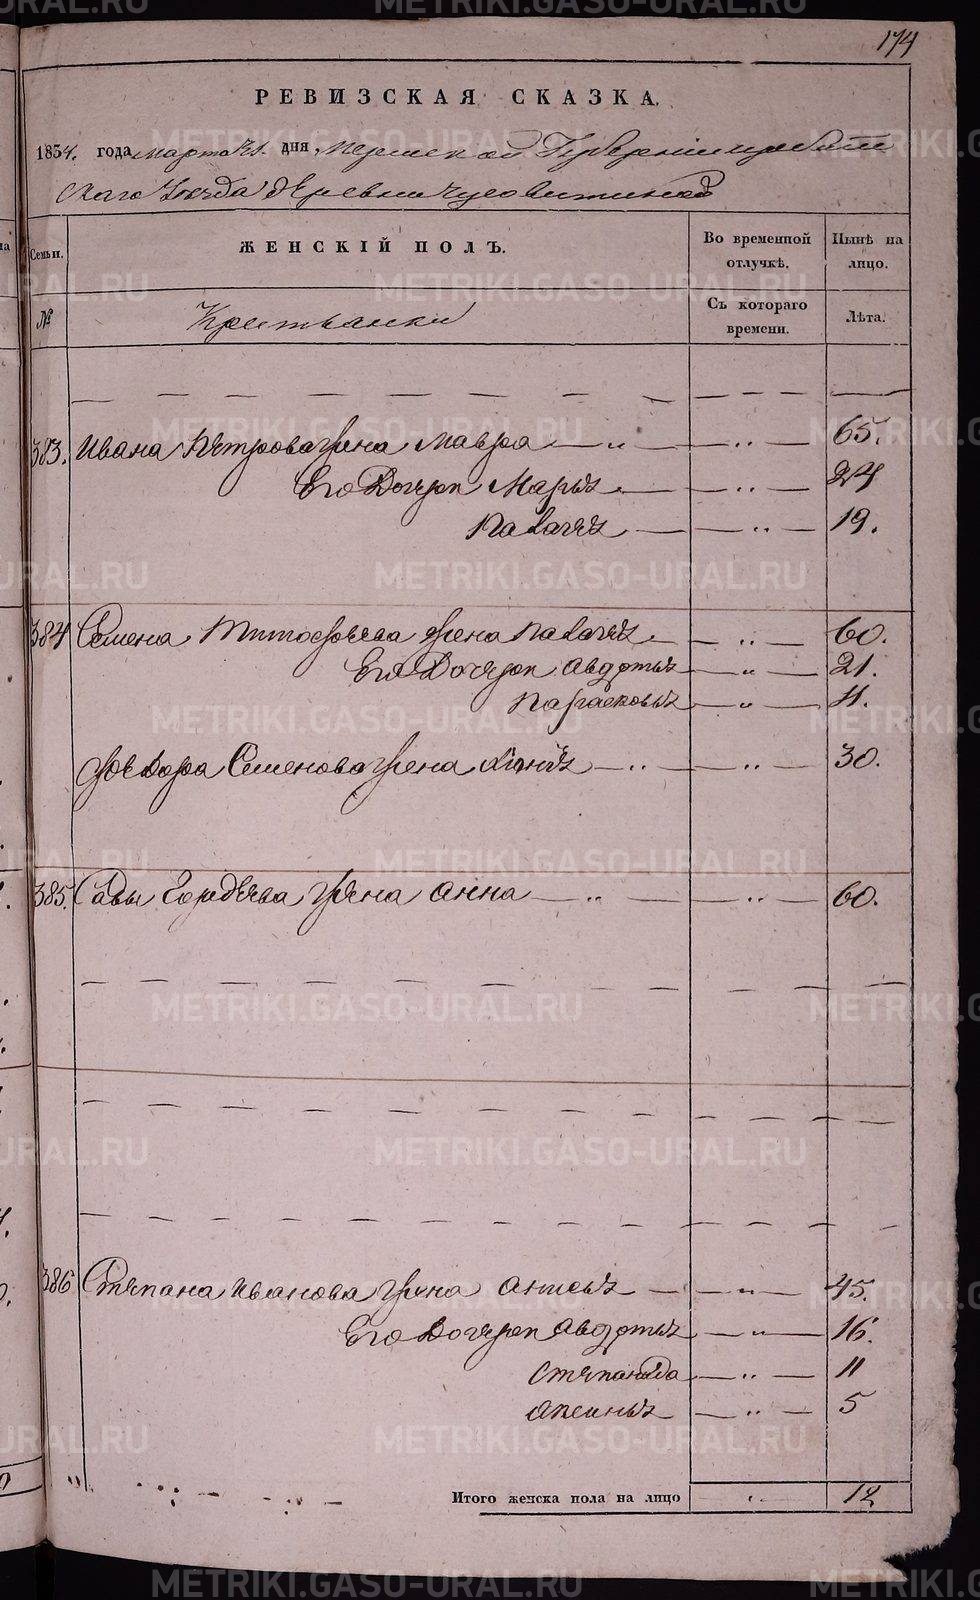 174
РЕВИЗСКАЯ СКАЗКА.
1834. года Марта 31. дня Пермской Губернии Ирбит
скаго Уезда деревни
Семьи. ЖЕНСКІЙ ПОЛЪ. Во временной отлучкѣ. Нынѣ на лицо.
№ Крестьянки Съ котораго времени. Лѣта.
383. Ивана Петрова жена Мавра — „ — „ — 65.
Его Дочери Марья — „ — 24
Палагея — „ — 19.
384 Семена Тимофеева жена Палагея — „ — 60.
Его Дочери Авдотья — „ — 21.
Парасковья — „ — 11.
Федора Семенова жена — „ — „ — 30.
385. Савы Гордеева жена Анна — „ — „ — 60.
386 Степана Иванова жена — „ — 45.
Его Дочери Авдотья — „ — 16.
Степанида — „ — 11
Аксинья — „ — 5
Итого женска пола на лицо — „ — 12
METRIKI.GASO-URAL.RU